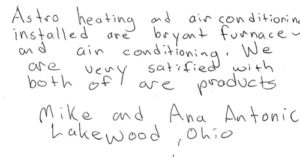 Astro heating and air conditionin
installed are bryant furnace
and air conditioning. We
are very satified with
both of are products
Mike and Ana Antonic
Lakewood, Ohio